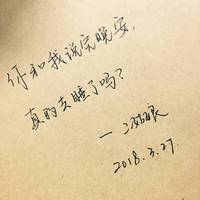 你和我说完晚安，
真的去睡了吗？
一二姑娘
2018.3.27.